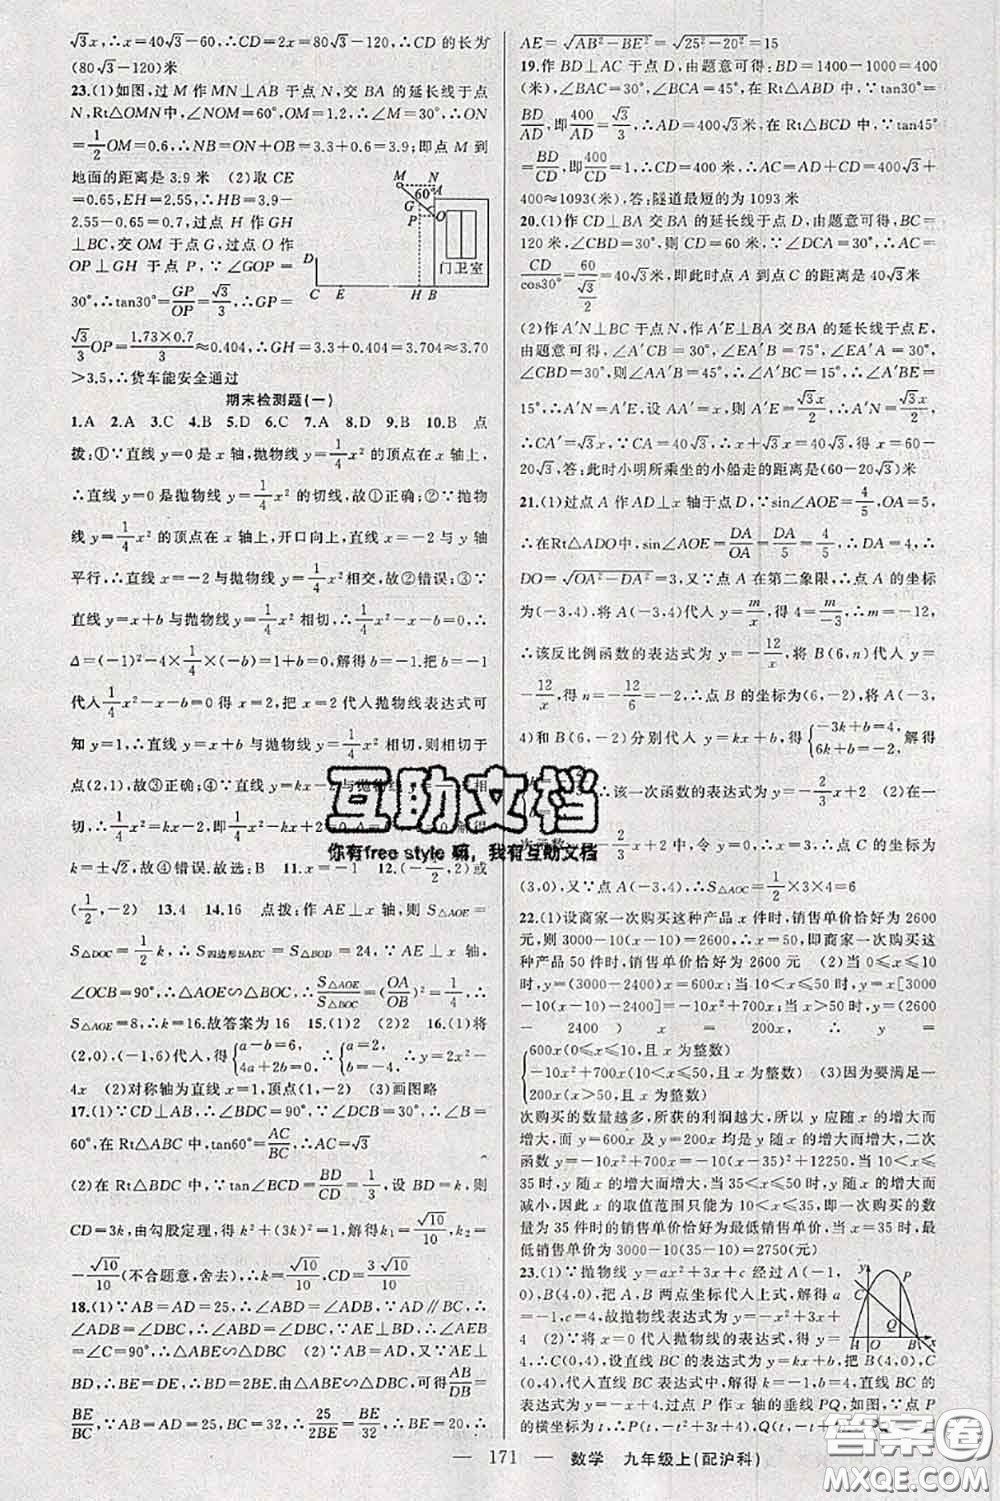 √3x,∴x=40√3-60,∴CD=2x=80√3-120,∴CD 的长为
(80√3-120)米
23.(1)如图,过 M 作 MN⊥AB 于点 N,交 BA 的延长线于点
N,Rt△OMN 中,∠NOM=60°,OM=1.2,∴∠M=30°,∴ON
=1/2OM=0.6,∴NB=ON+OB=3.3+0.6=3.9;即点 M 到
地面的距离是 3.9 米 (2)取 CE
=0.65,EH=2.55,∴HB=3.9-
2.55-0.65=0.7,过点 H 作 GH
⊥BC,交 OM 于点 G,过点 O 作
OP⊥GH 于点 P,∵∠GOP=
30°,∴tan30°=GP/OP=√3/3,∴GP=
√3/3OP=1.73×0.7/3≈0.404,∴GH=3.3+0.404=3.704≈3.70
>3.5,∴货车能安全通过
M N
60°
G
P O
门卫室
D
C E H B
期末检测题(一)
1.A 2.A 3.C 4.B 5.D 6.C 7.A 8.D 9.B 10.B 点
拨:①∵直线 y=0 是 x 轴,抛物线 y=1/4x² 的顶点在 x 轴上,
∴直线 y=0 是抛物线 y=1/4x² 的切线,故①正确;②∵抛物
线 y=1/4x² 的顶点在 x 轴上,开口向上,直线 x=-2 与 y 轴
平行,∴直线 x=-2 与抛物线 y=1/4x² 相交,故②错误;③∵
直线 y=x+b 与抛物线 y=1/4x² 相切,∴1/4x²-x-b=0,∴
Δ=(-1)²-4×1/4×(-b)=1+b=0,解得 b=-1.把 b=-1
代入1/4x²-x-b=0 得 x=2,把 x=2 代入抛物线表达式可
知 y=1,∴直线 y=x+b 与抛物线 y=1/4x² 相切,则相切于
点(2,1),故③正确;④∵直线 y=kx-2 与抛物线 y=1/4x² 相
切,∴1/4x²=kx-2,即1/4x²-kx+2=0,
k=±√2,故④错误.故选:B 11.x=-1 12.(-1/2,2)或
(1/2,-2) 13.4 14.16 点拨:作 AE⊥x 轴,则 S△AOE=
S△DOC=1/2k,∴S四边形BAEC=S△BOD=24,∵AE⊥x 轴,
∠OCB=90°,∴△AOE∽△BOC,∴S△AOE/S△BOC=(OA/OB)²=1/4,∴
S△AOE=8,∴k=16.故答案为 16 15.(1)2 (2)2 16.(1)将
(2,0),(-1,6)代入,得{a-b=6, 4a+2b=0} ∴{a=2, b=-4,} ∴y=2x²-
4x (2)对称轴为直线 x=1,顶点(1,-2) (3)画图略
17.(1)∵CD⊥AB,∴∠BDC=90°,∵∠DCB=30°,∴∠B=
60°,在 Rt△ABC 中,tan60°=AC/BC,∴AC=√3
(2)在 Rt△ABC 中,∵tan∠BCD=BD/CD=1/3,设 BD=k,则
CD=3k,由勾股定理,得 k²+(3k)²=1,解得 k₁=√10/10,k₂=
-√10/10(不合题意,舍去),∴k=√10/10,CD=3√10/10
18.(1)∵AB=AD=25,∴∠ABD=∠ADB,∵AD∥BC,∴
∠ADB=∠DBC,∴∠ABD=∠DBC,∵AE⊥BD,∴∠AEB
=∠C=90°,∴△ABE∽△DBC (2)∵AB=AD,又∵AE⊥
BD,∴BE=DE,∴BD=2BE.由△ABE∽△DBC,可得AB/DB=
BE/BC,∵AB=AD=25,BC=32,∴25/2BE=BE/32,∴BE=20,∴
AE=√AB²-BE²=√25²-20²=15
19.作 BD⊥AC 于点 D,由题意可得:BD=1400-1000=400
(米),∠BAC=30°,∠BCA=45°,在 Rt△ABD 中,∵tan30°=
BD/AD,即400/AD=√3/3,∴AD=400√3 米,在 Rt△BCD 中,∵tan45°
=BD/CD,即400/CD=1,∴CD=400 米,∴AC=AD+CD=400√3+
400≈1093(米),答:隧道最短的为 1093 米
20.(1)作 CD⊥BA 交 BA 的延长线于点 D,由题意可得,BC=
120 米,∠CBD=30°,则 CD=60 米,∵∠DCA=30°,∴AC=
CD/cos30°=60/(√3/2)=40√3米,即此时点 A 到点 C 的距离是 40√3米
(2)作 A′N⊥BC 于点 N,作 A′E⊥BA 交 BA 的延长线于点 E,
由题意可得,∠A′CB=30°,∠EA′B=75°,∠EAA′=60°,
∠CBD=30°,则∠A′AC=60°,∠AA′E=30°,∴∠A′BE=
15°,∴A′N=A′E,设 AA′=x,则 A′E=√3x/2,∴A′N=√3x/2,
∴CA′=√3x,∵CA=40√3,∴x+√3x=40√3,∴x=60-
20√3,答:此时小明所乘坐的小船走的距离是(60-20√3)米
21.(1)过点 A 作 AD⊥x 轴于点 D,∵sin∠AOE=4/5,OA=5,
∴在Rt△ADO中,sin∠AOE=DA/OA=DA/5=4/5,∴DA=4,∴
DO=√OA²-DA²=3,又∵点 A 在第二象限,∴点 A 的坐标
为(-3,4),将 A(-3,4)代入 y=m/x,得 4=m/-3,∴m=-12,
∴该反比例函数的表达式为 y=-12/x,将 B(6,n)代入 y=
-12/x,得 n=-12/6=-2,∴点 B 的坐标为(6,-2),将 A(-3,
4)和 B(6,-2)分别代入 y=kx+b,得{-3k+b=4, 6k+b=-2,} 解得
∴该一次函数的表达式为 y=-2/3x+2 (2)在一
次函数 y=-2/3x+2 中,令 y=0,∴点 C 的坐标为
(3,0),又∵点 A(-3,4),∴S△AOC=1/2×3×4=6
22.(1)设商家一次购买这种产品 x 件时,销售单价恰好为 2600
元,则 3000-10(x-10)=2600,∴x=50,即商家一次购买这
种产品 50 件时,销售单价恰好为 2600 元 (2)当 0≤x≤10
时,y=(3000-2400)x=600x;当 10<x≤50 时,y=x[3000
-10(x-10)-2400]=-10x²+700x;当 x>50 时,y=(2600
-2400)x=200x,∴y=
{600x(0≤x≤10,且 x 为整数)
-10x²+700x(10<x≤50,且 x 为整数) (3)因为要满足一
200x(x>50,且 x 为整数)
次购买的数量越多,所获的利润越大,所以 y 应随 x 的增大而
增大,而 y=600x 及 y=200x 均是 y 随 x 的增大而增大,二次
函数 y=-10x²+700x=-10(x-35)²+12250,当 10<x≤
35 时,y 随 x 的增大而增大,当 35<x≤50 时,y 随 x 的增大而
减小,因此 x 的取值范围只能为 10<x≤35,即一次购买的数
量为 35 件时的销售单价恰好为最低销售单价,当 x=35 时,最
低销售单价为 3000-10(35-10)=2750(元)
23.(1)∵抛物线 y=ax²+3x+c 经过 A(-1,
0),B(4,0),把 A,B 两点坐标代入上式,解得 a
=-1,c=4,故抛物线表达式为 y=-x²+3x+
4 (2)∵将 x=0 代入抛物线的表达式,得 y=
4,∴C(0,4),设直线 BC 的表达式为 y=kx+b,把 B(4,0),C
(0,4)代入直线 BC 表达式中,解得 k=-1,b=4,∴直线 BC
的表达式为 y=-x+4,过点 P 作 x 轴的垂线 PQ,如图,∵点 P
的横坐标为 t,∴P(t,-t²+3t+4),Q(t,-t+4)
y P
C
Q
H O B x
— 171 — 数学 九年级上(配沪科)
互助文档
你有free style 嘛,我有互助文档
答案圈
MXQE.COM